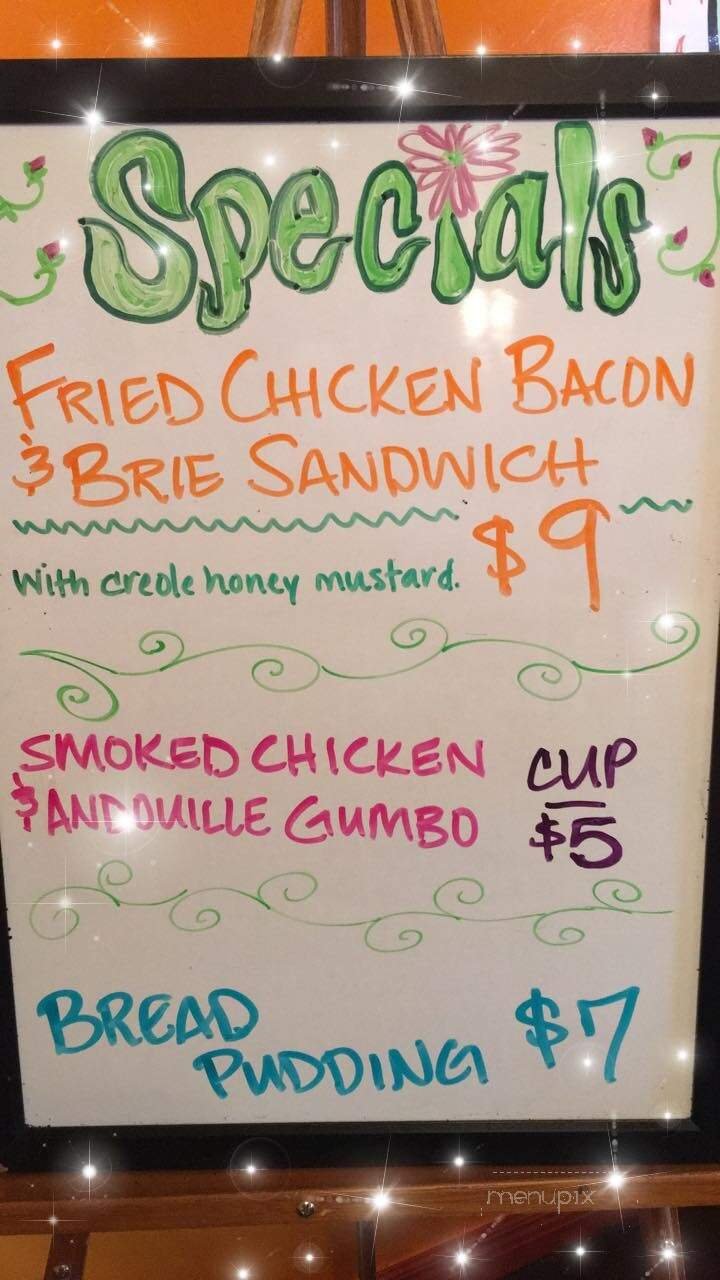 Specials
FRIED CHICKEN BACON
& BRIE SANDWICH
$9
with creole honey mustard.
SMOKED CHICKEN
& ANDOUILLE GUMBO
CUP
$5
BREAD
PUDDING
$7
menupix